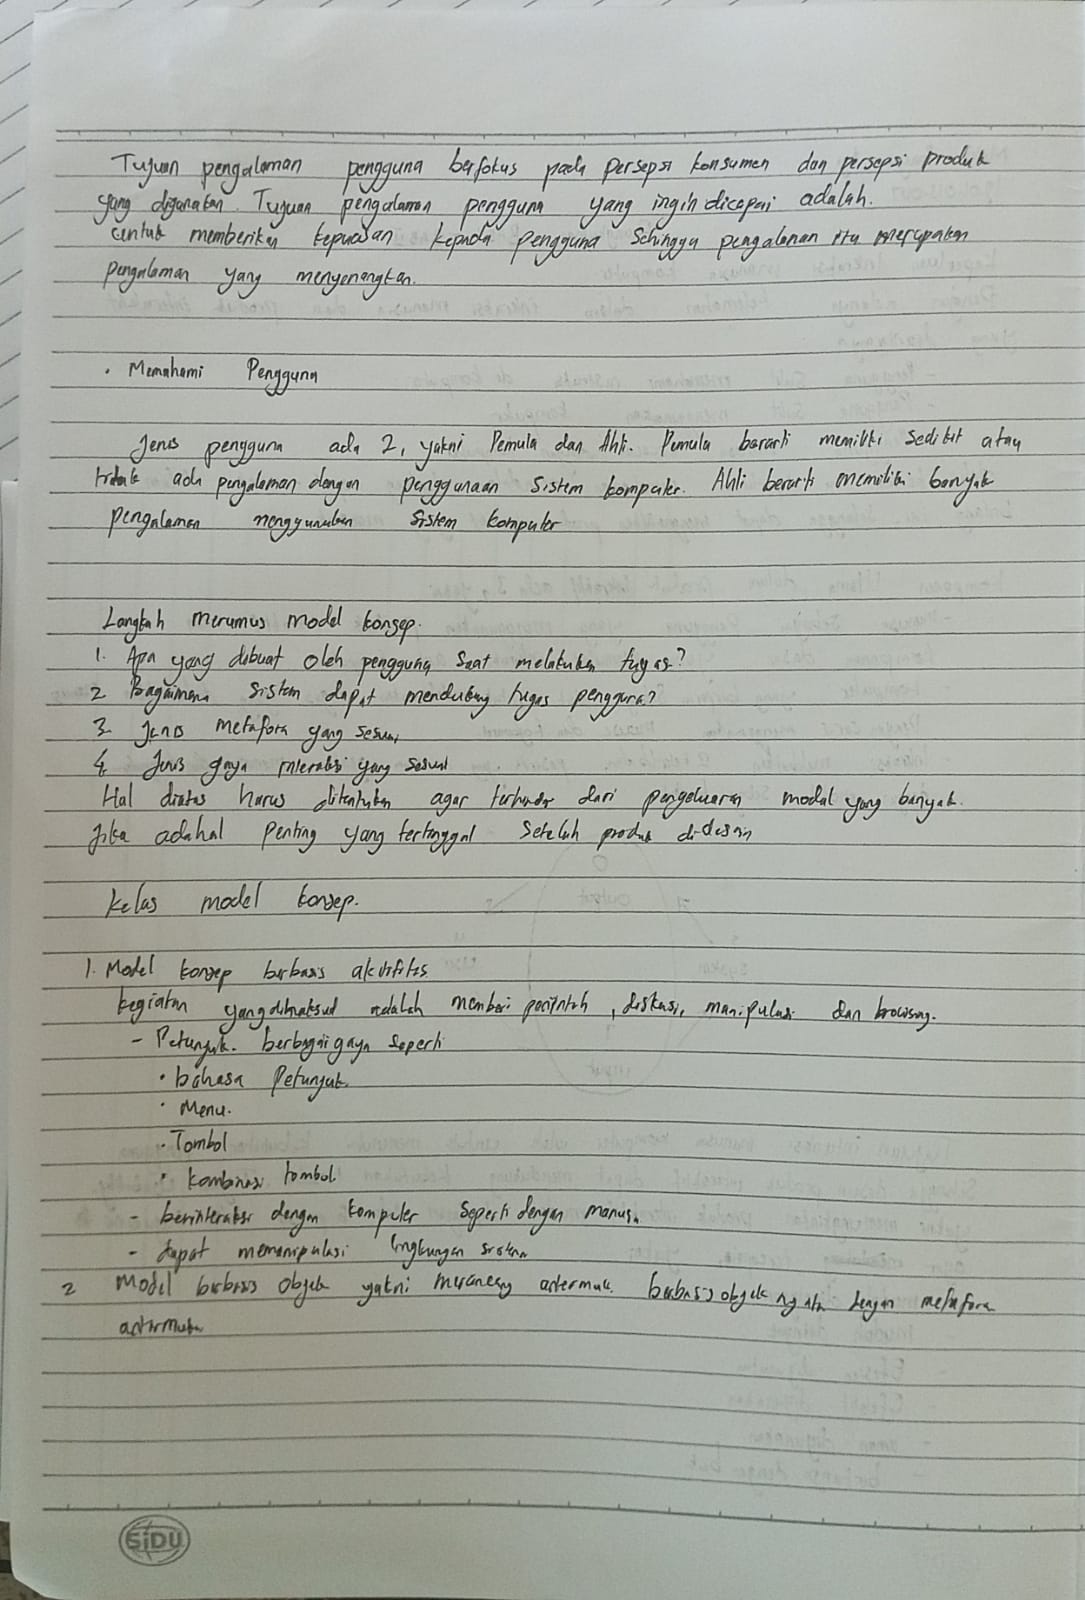 Tujuan pengalaman pengguna berfokus pada persepsi konsumen dan persepsi produk
yang digunakan. Tujuan pengalaman pengguna yang ingin dicapai adalah.
untuk memberikan kepuasan kepada pengguna sehingga pengalaman itu merupakan
pengalaman yang menyenangkan.
• Memahami Pengguna
Jenis pengguna ada 2, yakni Pemula dan Ahli. Pemula berarti memiliki sedikit atau
tidak ada pengalaman dengan penggunaan sistem komputer. Ahli berarti memiliki banyak
pengalaman menggunakan sistem komputer
Langkah merumus model konsep.
1. Apa yang dibuat oleh pengguna saat melakukan tugas?
2 Bagaimana sistem dapat mendukung tugas pengguna?
3. Jenis metafora yang sesuai
4 Jenis gaya interaksi yang sesuai
Hal diatas harus ditentukan agar terhindar dari pengeluaran modal yang banyak.
Jika adahal penting yang tertinggal setelah produk didesain
Kelas model konsep.
1. Model konsep berbasis aktifitas
kegiatan yang dimaksud adalah memberi perintah, diskusi, manipulasi dan browsing.
- Petunjuk. berbagai gaya seperti
• bahasa Petunjuk.
• Menu.
• Tombol
• kombinasi tombol
- berinteraksi dengan komputer seperti dengan manusia
- dapat memanipulasi lingkungan sistem
2 Model berbasis objek yakni merancang antarmuka berbasis objek nyata dengan metafora
antarmuka
SiDU